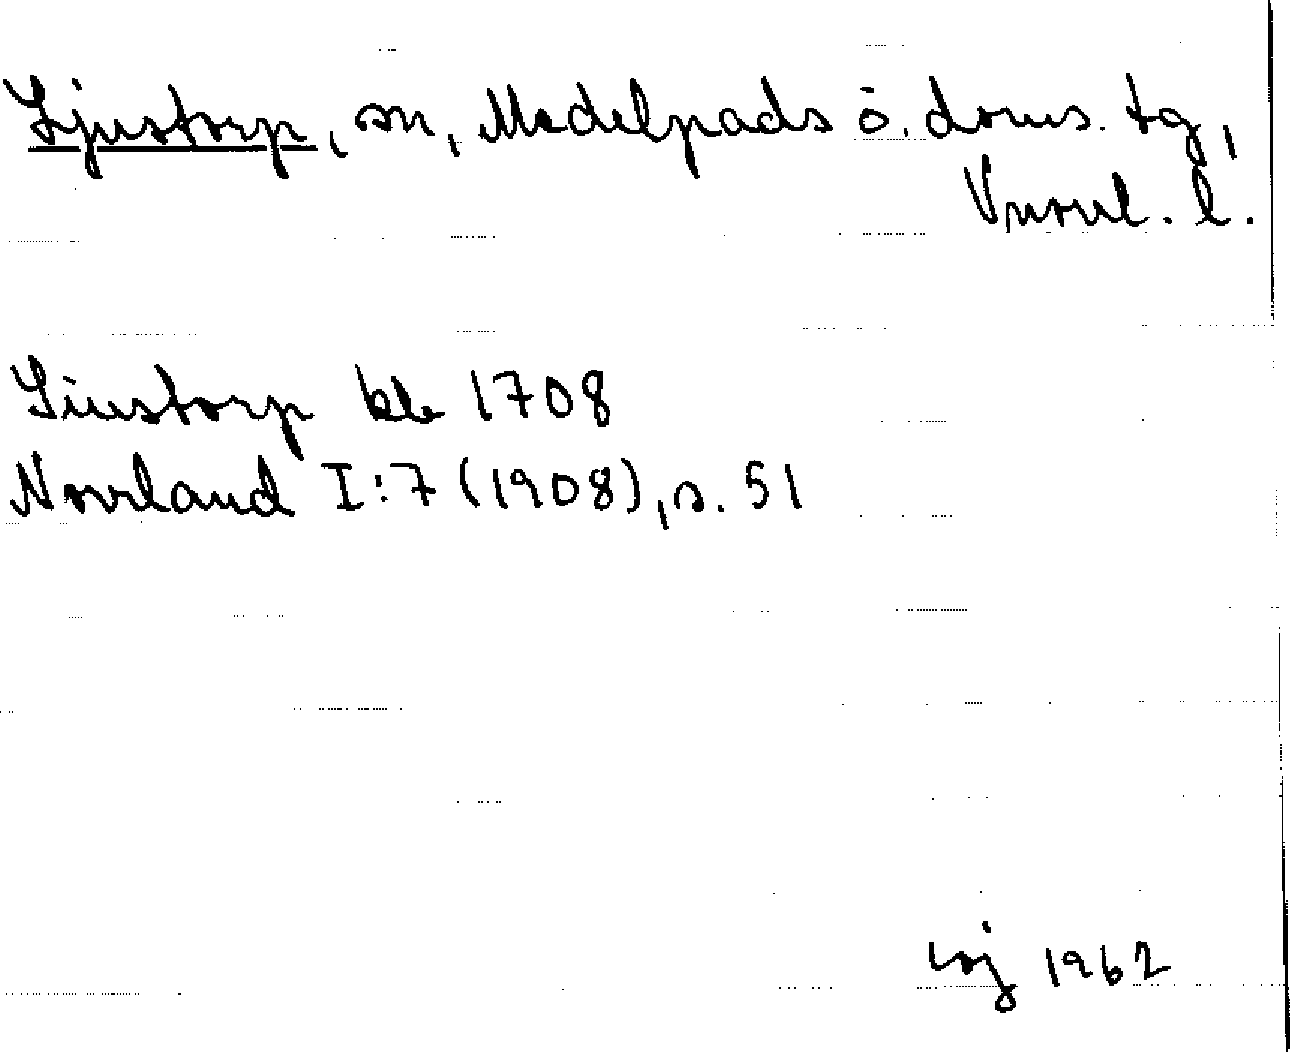 Ljustorp, sn, Medelpads ö. doms. tg,
Vnorrl. l.
Liustorp kb 1708
Norrland I:7 (1908), s. 51
1962